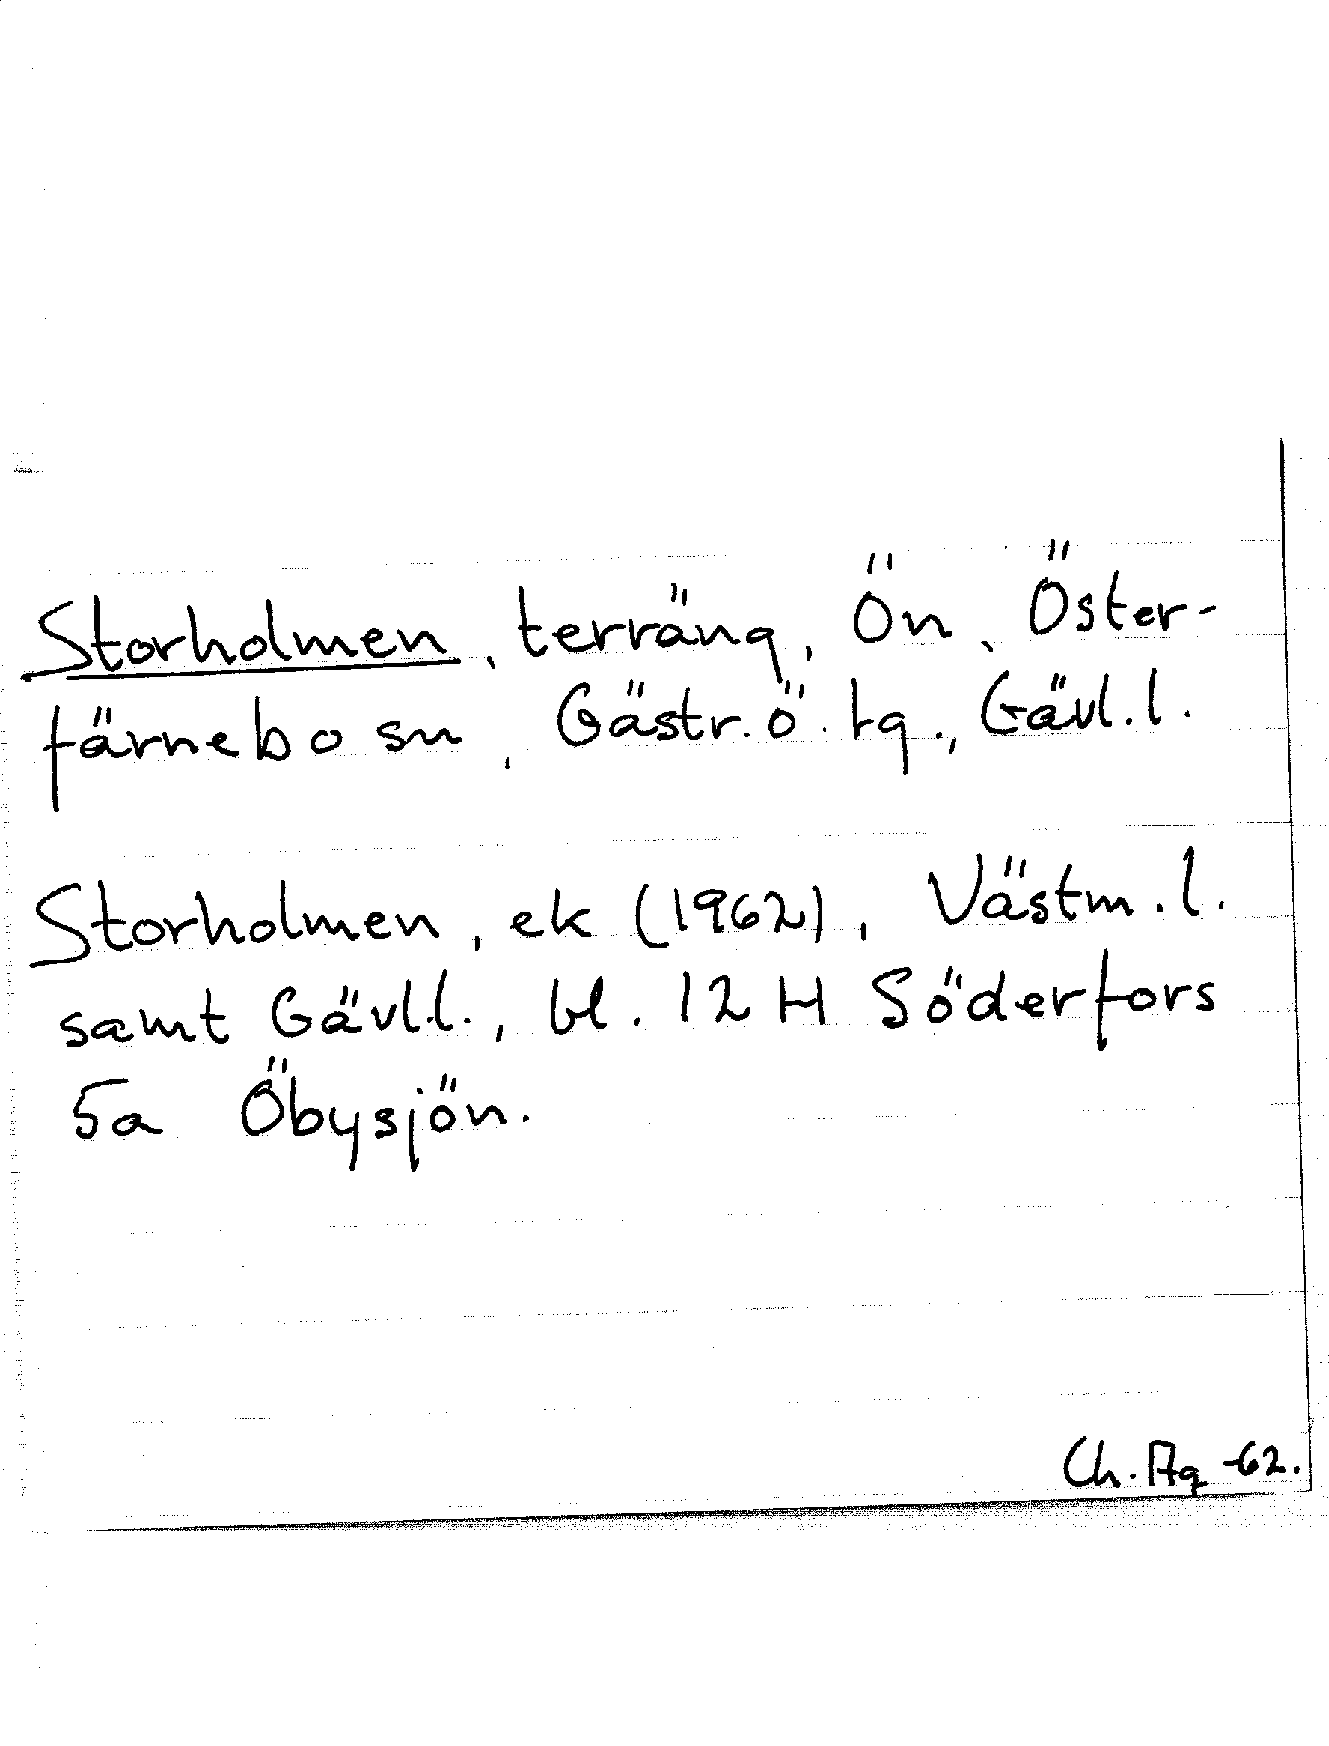 Storholmen, terräng, Ön, Öster-
färnebo sn, Gästr.ö. tg., Gävl.l.
Storholmen, ek (1962), Västm.l.
samt Gävl.l., bl. 12 H Söderfors
5a Öbysjön.
Ch. Ag -62.